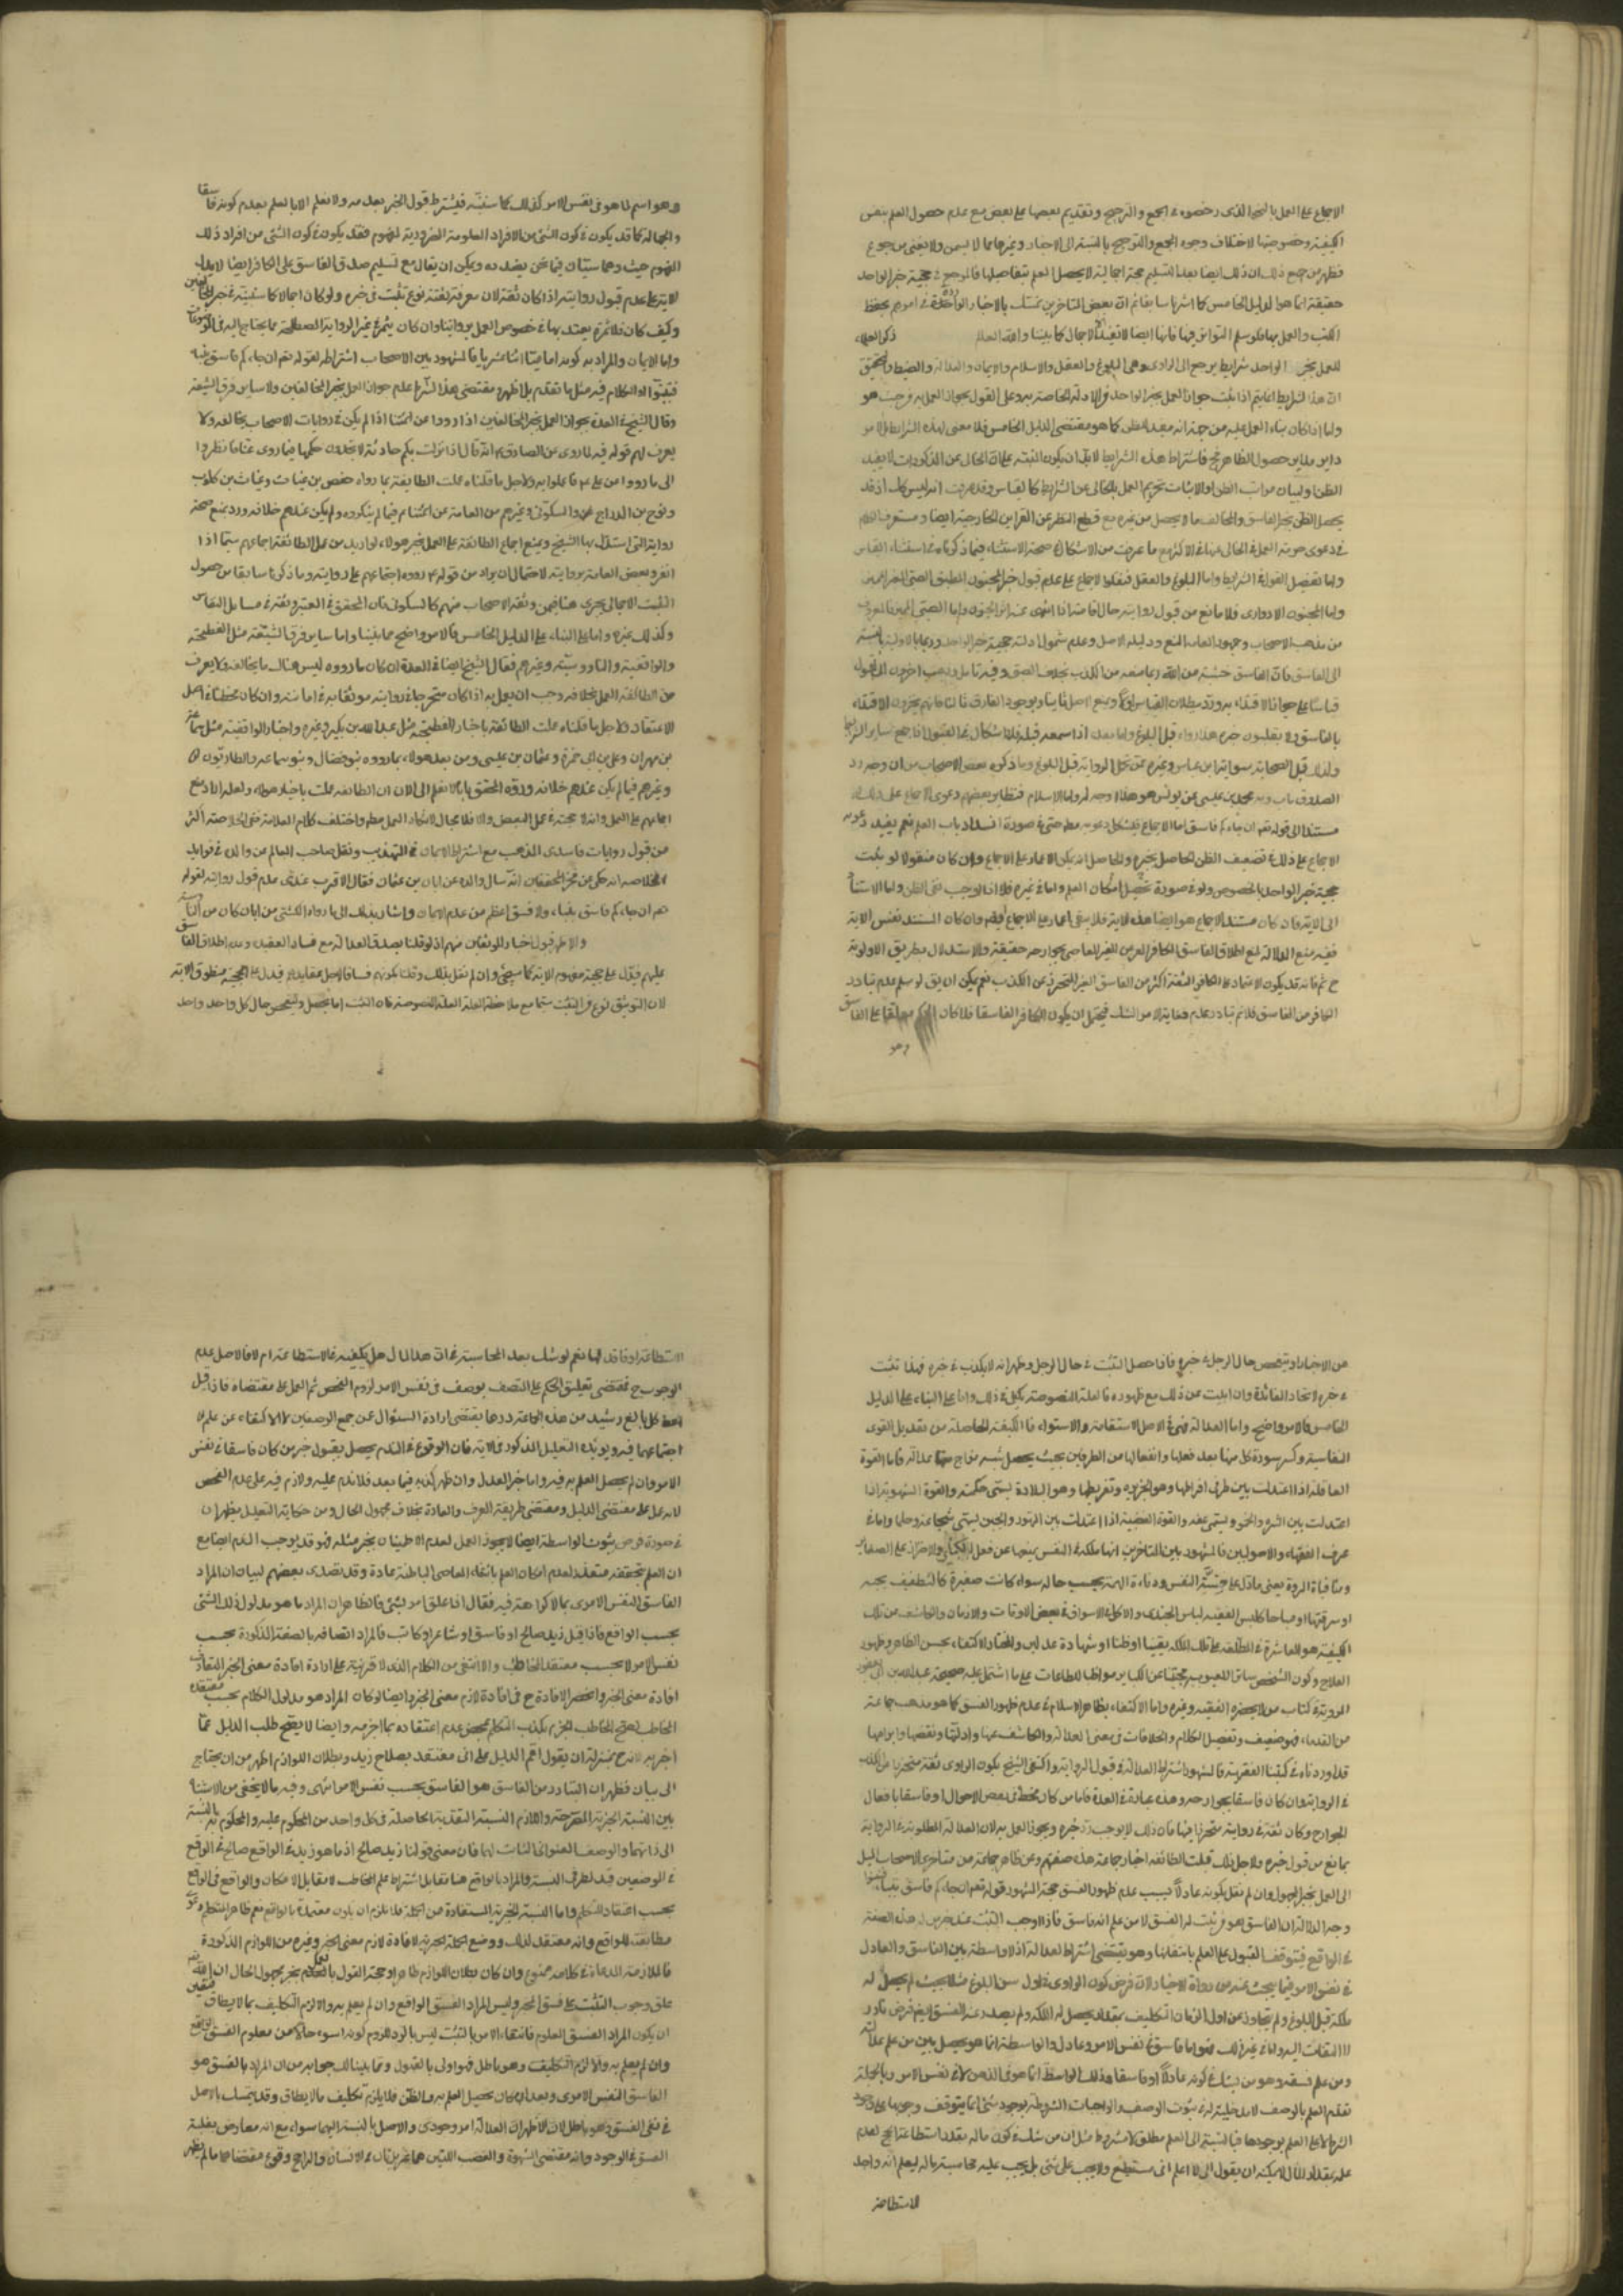 الاجماع على العمل بالنحو الذى رخصوه فى الجمع والترجيح وتقديم بعضها على بعض مع عدم حصول العلم بنفس
الكيفية وخصوصيتها لاختلاف وجوه الجمع والترجيح بالنسبة الى الاخبار وغيرها مما لا يسمن ولا يغنى من جوع
فظهر من جميع ذلك ان ذلك ايضا بعد التسليم حجة اجمالية لا يحصل العلم بتفاصيلها فالمرجع فى حجية خبر الواحد
حقيقة انما هو الدليل الخامس كما اشرنا سابقا ثم ان بعض المتاخرين تمسك بالاخبار الواردة فى امرهم بحفظ
الكتب والعمل بها فلو سلم التواتر فيها فانها ايضا لا تفيد الا الاجمال كما بينا والله العالم ذكر العلماء
للعمل بخبر الواحد شرايط يرجع الى الراوى وهى البلوغ والعقل والاسلام والايمان والعدالة والضبط والتحقيق
ان هذا الشرايط انما يتم اذا ثبت جواز العمل بخبر الواحد من الادلة الخاصة به وعلى القول بجواز العمل به من حيث هو
واما اذا كان بناء العمل عليه من جهة انه مفيد للظن كما هو مقتضى الدليل الخامس فلا معنى لهذه الشرايط بل الامر
داير مدار حصول الظن فاشتراط هذه الشرايط لا بد ان يكون للتنبيه على ان الخالى عن المذكورات لا يفيد
الظن او لبيان مراتب الظن او لاثبات تحريم العمل بالخالى عن الشرايط كالقياس وقد عرفت انه ليس كذلك اذ قد
يحصل الظن بخبر الفاسق والمخالف ما لا يحصل من غيره مع قطع النظر عن القراين الخارجية ايضا
فى دعوى حرمة العمل فى الخالى عنها فى الاكثر مع ما عرفت من الاشكال فى صحة الاستثناء فيما ذكرناه فى استثناء القياس
واما تفصيل القول فى الشرايط واما البلوغ والعقل فنقلوا الاجماع على عدم قبول خبر المجنون المطبق والصبى الغير المميز
واما المجنون الادوارى فلا مانع من قبول روايته حال افاقته اذا انتفى عنه اثر الجنون واما الصبى المميز فالمعروف
من مذهب الاصحاب وجمهور العامة المنع ودليله الاصل وعدم شمول ادلة حجية خبر الواحد وربما بالاولوية بالنسبة
الى الفاسق فان للفاسق خشية من الله ربما منعه من الكذب بخلاف الصبى وفيه تامل وذهب اخرون الى القبول
قياسا على جواز الاقتداء به ورد ببطلان القياس اولا وبمنع الاصل ثانيا وبوجود الفارق ثالثا فانهم يجوزون الاقتداء
بالفاسق ولا يقبلون خبره هذا اذا رواه قبل البلوغ واما بعده اذا سمعه قبله فلا اشكال فى القبول اذا جمع سائر الشرايط
ولذلك قبل الصحابة رواية ابن عباس وغيره ممن تحمل الرواية قبل البلوغ وما ذكره بعض الاصحاب من ان وجه رد
الصدوق رواية محمد بن عيسى عن يونس هو هذا لا وجه له واما الاسلام فنظاير بعضهم دعوى الاجماع على ذلك
مستندا الى قوله تعالى ان جاءكم فاسق اما الاجماع فيشكل دعويه مطلقا حتى فى صورة انسداد باب العلم نعم يفيد دعوى
الاجماع على ذلك تضعيف الظن الحاصل بخبره والحاصل انه يمكن الاعتماد على الاجماع وان كان منقولا لو ثبت
حجية خبر الواحد بالخصوص ولو فى صورة تحصيل امكان العلم واما فى غيره فلا اذ الواجب هى الظن واما الاستناد
الى الاية فان كان مستند الاجماع هو ايضا هذه الاية فلا يبقى اعتماد على الاجماع ايضا وان كان المستند نفس الاية
ففيه منع الدلالة لمنع اطلاق الفاسق على الكافر العرفى الغير العاصى بجوارحه حقيقة والاستدلال بطريق الاولوية
ح ثم فانه قد يكون الاعتماد على الكافر الثقة اكثر من الفاسق الغير المتحرز عن الكذب نعم يمكن ان يق لو سلم عدم تبادر
الكافر من الفاسق فلا نم تبادر عدمه فغاية الامر الشك فيحتمل ان يكون الكافر فاسقا فلما كان الحكم معلقا على الفاسق
وهو
وهو اسم لما هو فى نفس الامر كذلك كما سنبينه فيشترط قبول الخبر بعدمه ولا نعلم الا بالعلم بعدم كونه فاسقا
والجهالة كما قد يكون فى كون الشئ من الافراد المعلومة الفردية لمفهوم فقد يكون فى كون الشئ من افراد ذلك
المفهوم حيث وهما سيان فيما نحن بصدده ويمكن ان يقال مع تسليم صدق الفاسق على الكافر ايضا لا يدل
الاية على عدم قبول روايته اذا كان ثقة لان معرفة ثقته نوع تثبت فى خبره ولو كان اجمالا كما سنبينه فى خبر المخالفين
وكيف كان فلا ثمرة يعتد بها فى خصوص العمل برواياتنا وان كان يثمر فى غير الرواية المصطلحة مما يحتاج اليه فى الموضوعات
واما الايمان والمراد به كونه اماميا اثنا عشريا فالمشهور بين الاصحاب اشتراطه لقوله تعالى ان جاءكم فاسق بنبا
فتبينوا والكلام فيه مثل ما تقدم بل اظهر ومقتضى هذا الشرط عدم جواز العمل بخبر المخالفين ولا ساير فرق الشيعة
وقال الشيخ فى العدة بجواز العمل بخبر المخالفين اذا رووا عن ائمتنا اذا لم يكن فى روايات الاصحاب ما يخالفه ولا
يعرف لهم قول فيه لما روى عن الصادق ع انه قال اذا نزلت بكم حادثة لا تجدون حكمها فيما روى عنا فانظروا
الى ما رووا عن على ع فاعملوا به ولاجل ما قلناه عملت الطايفة بما رواه حفص بن غياث وغياث بن كلوب
ونوح بن الدراج والسكونى وغيرهم من العامة عن ائمتنا ع فيما لم ينكروه ولم يكن عندهم خلافه ورد بمنع صحة
رواية التى استدل بها الشيخ وبمنع اجماع الطائفة على العمل بخبر هولاء لو اريد من عمل الطائفة اجماعهم سيما اذا
انفرد بعض العامة بروايته لاحتمال ان يراد من قوله ع رووه اجتماعهم على روايته وما ذكرنا سابقا من حصول
التثبت الاجمالى يجرى هنا فيمن وثقه الاصحاب منهم كالسكونى فان المحقق فى المعتبر وثقه فى مسايل النفاس
وكذلك غيره واما على البناء على الدليل الخامس فالامر واضح مما بينا واما ساير فرق الشيعة مثل الفطحية
والواقفية والناووسية وغيرهم فقال الشيخ ايضا فى العدة ان كان ما رووه ليس هناك ما يخالفه ولا يعرف
من الطائفة العمل بخلافه وجب ان يعمل به اذا كان متحرجا فى روايته موثقا به فى امانته وان كان مخطئا فى اصل
الاعتقاد ولاجل ما قلناه عملت الطائفة باخبار الفطحية مثل عبد الله بن بكير وغيره واخبار الواقفية مثل سماعة
بن مهران وعلى بن ابى حمزة وعثمان بن عيسى ومن بعد هولاء بما رووه بنو فضال وبنو سماعة والطاطريون
وغيرهم فيما لم يكن عندهم خلافه ورده المحقق بانا لا نعلم الى الان ان الطائفة عملت باخبار هولاء ولعله اراد منع
اجماعهم على العمل وانه لا حجة فى عمل البعض والا فلا مجال لانكار العمل مطلقا واختلف كلام العلامة ففى الخلاصة اكثر
من قبول روايات فاسدى المذهب مع اشتراط الايمان فى التهذيب ونقل صاحب المعالم عن والده فى فوايد
الخلاصة انه حكى عن فخر المحققين انه سال والده عن ابان بن عثمان فقال الاقرب عندى عدم قبول روايته لقوله
تعالى ان جاءكم فاسق بنبا ولا فسق اعظم من عدم الايمان واشار بذلك الى ما رواه الكشى من ابان كان من الناووسية
والاظهر قبول اخبار الموثقين منهم اذ لو قلنا بصدق العدالة مع فساد العقيدة وعدم اطلاق الفاسق
عليهم فيدل على حجية مفهوم الاية كما سيجئ وان لم نقل بذلك وقلنا بكونهم فساقا لاجل عقايدهم فيدل على الحجية منطوق الاية
لان التوثيق نوع من التثبت سيما مع ملاحظة العلة المنصوصة فان التثبت اما بتحصيل وتفحص حال كل واحد واحد
من الاخبار او بتفحص حال الرجل فى خبره فاذا حصل التثبت فى حال الرجل وظهر انه لا يكذب فى خبره فهذا تثبت
فى خبره لاتحاد الفائدة وان ابيت عن ذلك مع ظهوره فالعلة المنصوصة يكفى فى ذلك واما على البناء على الدليل
الخامس فالامر واضح واما العدالة فهى فى الاصل الاستقامة والاستواء فالكيفية الحاصلة من تعديل القوى
النفسانية وكسر سورة كل منها بعد فعلها وانفعالها من الطرفين بحيث يحصل شبه مزاج منها عدالة فاما القوة
العاقلة اذا اعتدلت بين طرفى افراطها وهو الجربزه وتفريطها وهو البلادة يسمى حكمة والقوة الشهوية اذا
اعتدلت بين الشره والخمود يسمى عفة والقوة الغضبية اذا اعتدلت بين التهور والجبن يسمى شجاعة وحلما واما فى
عرف الفقهاء والاصوليين فالمشهور بين المتاخرين انها ملكة فى النفس يمنعها من فعل الكباير والاصرار على الصغاير
ومنافيات المروة يعنى ما دل على خسة النفس ودناءة الهمة بحسب حاله سواء كانت صغيرة كالتطفيف بحبة
او سرقتها او مباحا كلبس الفقيه لباس الجندى والاكل فى الاسواق فى بعض الاوقات والازمان والكاشف عن تلك
الكيفية هو المعاشرة المطلعة على تلك الملكة يقينا او ظنا او شهادة عدلين والمختار الاكتفاء بحسن الظاهر وظهور
الصلاح وكون الشخص ساترا لعيوبه مجتنبا عن الكباير مواظبا للطاعات على ما اشتمل عليه صحيحة عبد الله بن ابى يعفور
المروية فى كتاب من لا يحضره الفقيه وغيره واما الاكتفاء بظاهر الاسلام فى عدم ظهور الفسق كما هو مذهب جماعة
من القدماء فهو ضعيف وتفصيل الكلام والخلافات فى معنى العدالة والكاشف عنها وادلتها ونقضها وابرامها
قد اوردناه فى كتبنا الفقهية فالمشهور اشتراط العدالة فى قبول الرواية واكتفى الشيخ بكون الراوى ثقة متحرزا عن الكذب
فى الرواية وان كان فاسقا بجوارحه وهذه عبارته فى العدة فاما من كان مخطئا فى بعض الاحوال او فاسقا بافعال
الجوارح وكان ثقة فى روايته متحرزا فيها فان ذلك لا يوجب رد خبره ويجوز العمل به لان العدالة المطلوبة فى الرواية
بمانع من قبول خبره ولاجل ذلك قبلت الطائفة اخبار جماعة هذه صفتهم وعن ظاهر جماعة من متاخرى الاصحاب الميل
الى العمل بخبر المجهول وان لم نقل بكونه عادلا بسبب عدم ظهور الفسق حجة المشهور قوله تعالى ان جاءكم فاسق بنبا فتبينوا
وجه الدلالة ان الفاسق هو من ثبت له الفسق لا من علم انه فاسق فاذا وجب التثبت عند خبر من له هذه الصفة
فى الواقع فيتوقف القبول على العلم بانتفائها وهو يقتضى اشتراط العدالة اذ لا واسطة بين الفاسق والعادل
فى نفس الامر فيما يبحث عنه من رواة الاخبار لان فرض كون الراوى فى اول سن البلوغ مثلا بحيث لم يحصل له
ملكة قبل البلوغ ولم يتجاوز عن اول زمان التكليف بمقدار يحصل له الملكة ولم يصدر عنه الفسق ايضا فرض نادر
لا التفات اليه واما فى غير ذلك فهو اما فاسق فى نفس الامر او عادل والواسطة انما هو يحصل بين من علم عدالته
ومن علم فسقه وهو من يشك فى كونه عادلا او فاسقا وتلك الواسطة انما هو فى الذهن لا فى نفس الامر وبالجملة
تقدم العلم بالوصف لا مدخلية له فى ثبوت الوصف والواجبات المشروطة بوجود شئ انما يتوقف وجوبها على وجود
الشرط لا على العلم بوجودها فبالنسبة الى العلم مطلق لا مشروط مثل ان من شك فى كون ماله بقدر استطاعة الحج لعدم
علمه بمقدار المال لا يمكنه ان يقول انى لا اعلم انى مستطيع ولا يجب على شئ بل يجب عليه محاسبة ماله ليعلم انه واجد
الاستطاعة
الاستطاعة او فاقد لها نعم لو شك بعد المحاسبة فى ان هذا المال هل يكفيه فى الاستطاعة ام لا فالاصل عدم
الوجوب ح فمقتضى تعليق الحكم على المتصف بوصف فى نفس الامر لزوم الفحص ثم العمل على مقتضاه فاذا قيل
اعط كل بالغ رشيد من هذه الجماعة درهما يقتضى ارادة السؤال عن جمع الوصفين لا الاكتفاء عن علم
اجتماعهما فيه ويؤيده التعليل المذكور فى الاية فان الوقوع فى الندم يحصل بقبول خبر من كان فاسقا فى نفس
الامر وان لم يحصل العلم به فيه واما خبر العدل وان ظهر كذبه فيما بعد فلا ندم عليه ولا ذم فيه على عدم الفحص
لانه عمل على مقتضى الدليل ومقتضى طريقة العرف والعادة بخلاف مجهول الحال ومن حكاية التعليل يظهر ان
فى صورة فرض ثبوت الواسطة ايضا لا يجوز العمل لعدم الاطمينان بخبر مثله فهو قد يوجب الندم ايضا مع
ان العلم بتحققه متعذر لعدم امكان العلم بانتفاء المعاصى الباطنة عادة وقد تصدى بعضهم لبيان ان المراد
الفاسق النفس الامرى بما لا كراهة فيه فقال اذا علق امر بشئ فالظاهر ان المراد ما هو مدلول ذلك الشئ
بحسب الواقع فاذا قيل زيد صالح او فاسق او شاعر او كاتب فالمراد اتصافه بالصفة المذكورة بحسب
نفس الامر لا بحسب معتقد المخاطب والا انتفى من الكلام الذى لا قرينة على ارادة افادة معنى الخبر التفات
افادة معنى الخبر وانحصر الافادة ح فى افادة لازم معنى الخبر وايضا لو كان المراد هو مدلول الكلام بحسب معتقد
المخاطب لصح للمخاطب الجزم بكذب المتكلم بمحض عدم اعتقاده بما اخبر به وايضا لا يصح طلب الدليل عما
اخبر به لانه ح بمنزلة ان يقول اقم الدليل على انى معتقد بصلاح زيد وبطلان اللوازم اظهر من ان يحتاج
الى بيان فظهر ان المتبادر من الفاسق هو الفاسق بحسب نفس الامر انتهى وفيه ما لا يخفى من الاشتباه
بين النسبة الخبرية المصرحة واللازم النسبة التقديرية الحاصلة فى كل واحد من المحكوم عليه والمحكوم به بالنسبة
الى ذاتهما والوصف العنوانى الثابت لهما فان معنى قولنا زيد صالح اذ ما هو زيد فى الواقع صالح فى الواقع
فى الموضعين قيد لطرفى النسبة والمراد بالواقع هنا مقابل اشتراط علم المخاطب لا مقابل الامكان والواقع فى الواقع
بحسب اعتقاد المتكلم واما النسبة الخبرية المستفادة من الجملة فلا يلزم ان يكون مقيدة بالواقع نعم ظاهر المتكلم دعوى
مطابقته للواقع وانه معتقد لذلك ووضع الجملة الخبرية لافادة لازم معنى الخبر وغيره من اللوازم المذكورة
فالملازمة المدعاة فى كلامه ممنوع وان كان بطلان اللوازم ظاهرا وحجة القول بالعمل بخبر مجهول الحال ان الله تعالى
علق وجوب التثبت على فسق المخبر وليس المراد الفسق الواقع وان لم يعلم به والا لزم التكليف بما لا يطاق فتعين
ان يكون المراد الفسق المعلوم فانتفاء الامر بالتثبت ليس بالرد للزوم كونه اسوء حالا من معلوم الفسق
وان لم يعلم به والا لزم التكليف وهو باطل فهو اولى بالقبول ومما بينا لك جوابه من ان المراد بالفسق هو
الفاسق النفس الامرى وبعد امكان تحصيل العلم به والظن فلا يلزم تكليف ما لا يطاق وقد يتمسك بالاصل
فى نفى الفسق وهو باطل لان الاظهر ان العدالة امر وجودى والاصل بالنسبة اليهما سواء مع انه معارض بغلبة
الفسق فى الوجود وانه مقتضى الشهوة والغضب اللتين هما غريزتان فى الانسان والراجح وقوع مقتضاهما ما لم يظهر